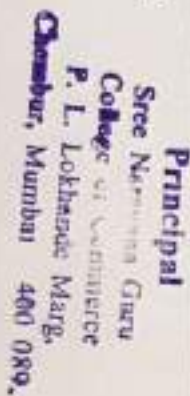 Principal
Sree Narayana Guru
College of Commerce
P. L. Lokhande Marg,
Chembur, Mumbai 400 089.